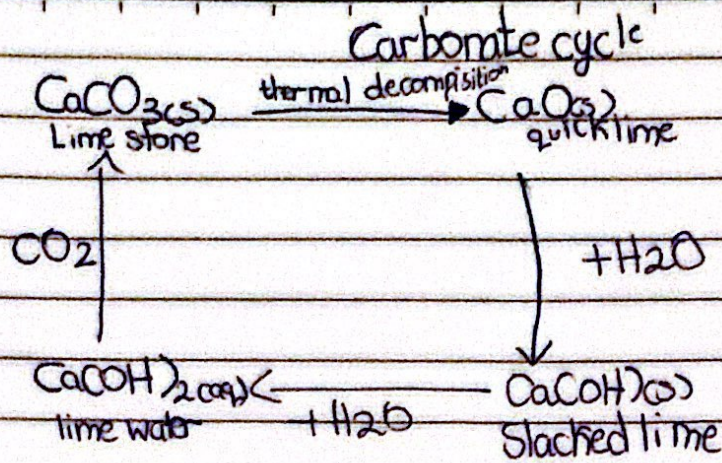 Carbonate cycle
CaCO3(s) thermal decompisition CaO(s)
Lime stone quicklime
CO2 +H2O
Ca(OH)2(aq) +H2O Ca(OH)(s)
lime water Slacked lime